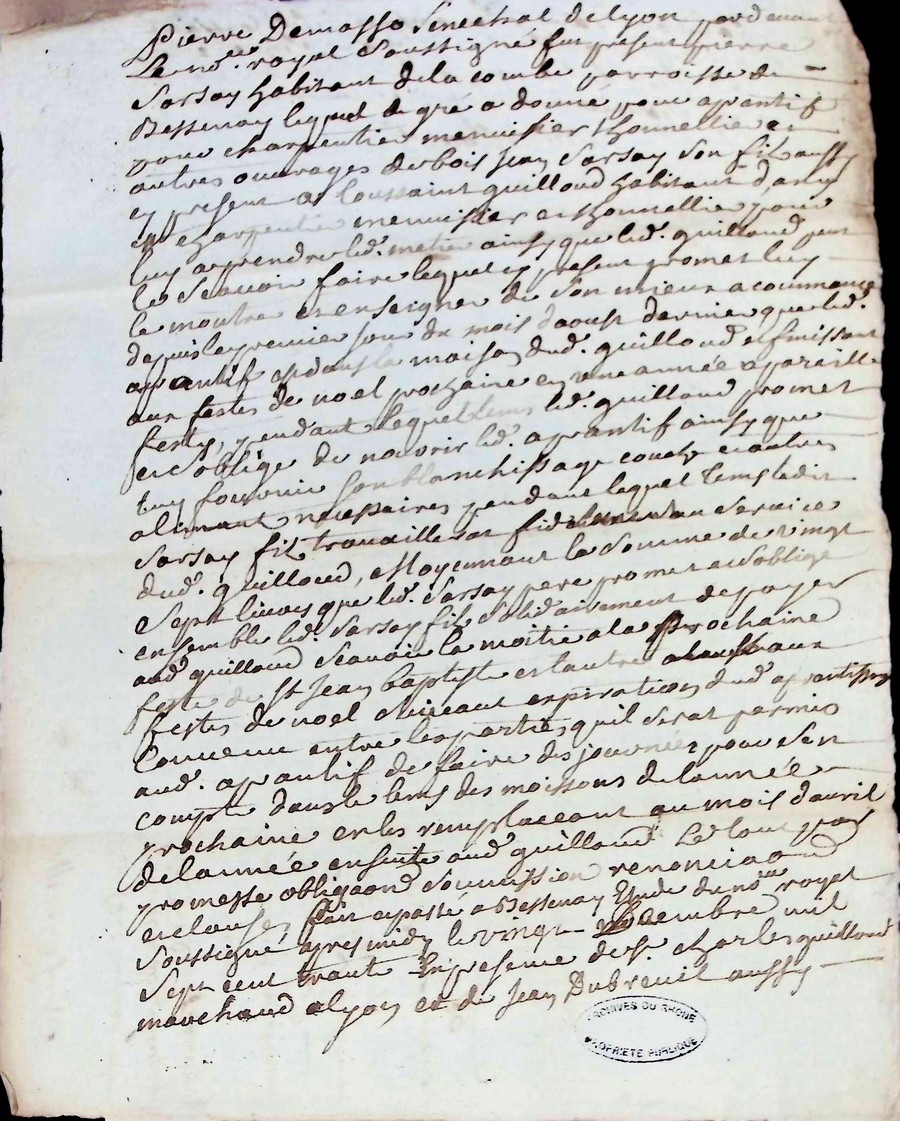 Pierre Demasso Senechal de Lyon pardevant
Le no.re royal Soussigné fut present pierre
Sarsay habitant de la combe parroisse de
Bessenay lequel de gré a donné pour aprantif
pour charpentier menuisier thonnellier et
autres ouvrages de bois Jean Sarsay Son fil aussy
cy present a toussaint guilloud habitant
me charpentier menuisier et thonnellier pour
luy aprendre led. metier ainsy que led. guilloud peut
le Scavoir faire lequel cy present promet luy
le montre et enseigner de Son mieux a commance
depuis le premier jour du mois daoust dernier que led.
aprantif est dans la maison dud. guilloud et finissant
aux festes de noel prochaine en une année a pareille
feste, pendant lequel tems led. guilloud promet
et soblige de nourir led. aprantif ainsy que
luy fournir Son blanchissage couche et autres
alimant necessaires pendant lequel tems ledit
Sarsay fil travaillerat fidellement au Service
dud. guilloud, Moyennant la Somme de vingt
Sept livres que led. Sarsay pere promet et soblige
ensemble led. Sarsay fil Solidairement de payer
aud guilloud Scavoir la moitié a la prochaine
feste de St Jean baptiste et lautre aux
festes de noel Suivant expiration dud aprantissage
Convenu entre les parties quil Serat permis
aud. aprantif de faire des journées pour Son
compte dans le tems des moissons de lannée
prochaine en les remplaceant au mois davril
de lannée ensuite aud guilloud Le tout par
promesse obligaond Soumission renonciaond
et clauses, fait et passé a Bessenay Etude du no.re royal
Soussigné apres midy le vingt decembre mil
Sept cent trante En presence de Sr. charle guilloud
marchand a lyon et de Jean Dubreuil aussy
ARCHIVES DU RHÔNE
PROPRIÉTÉ PUBLIQUE